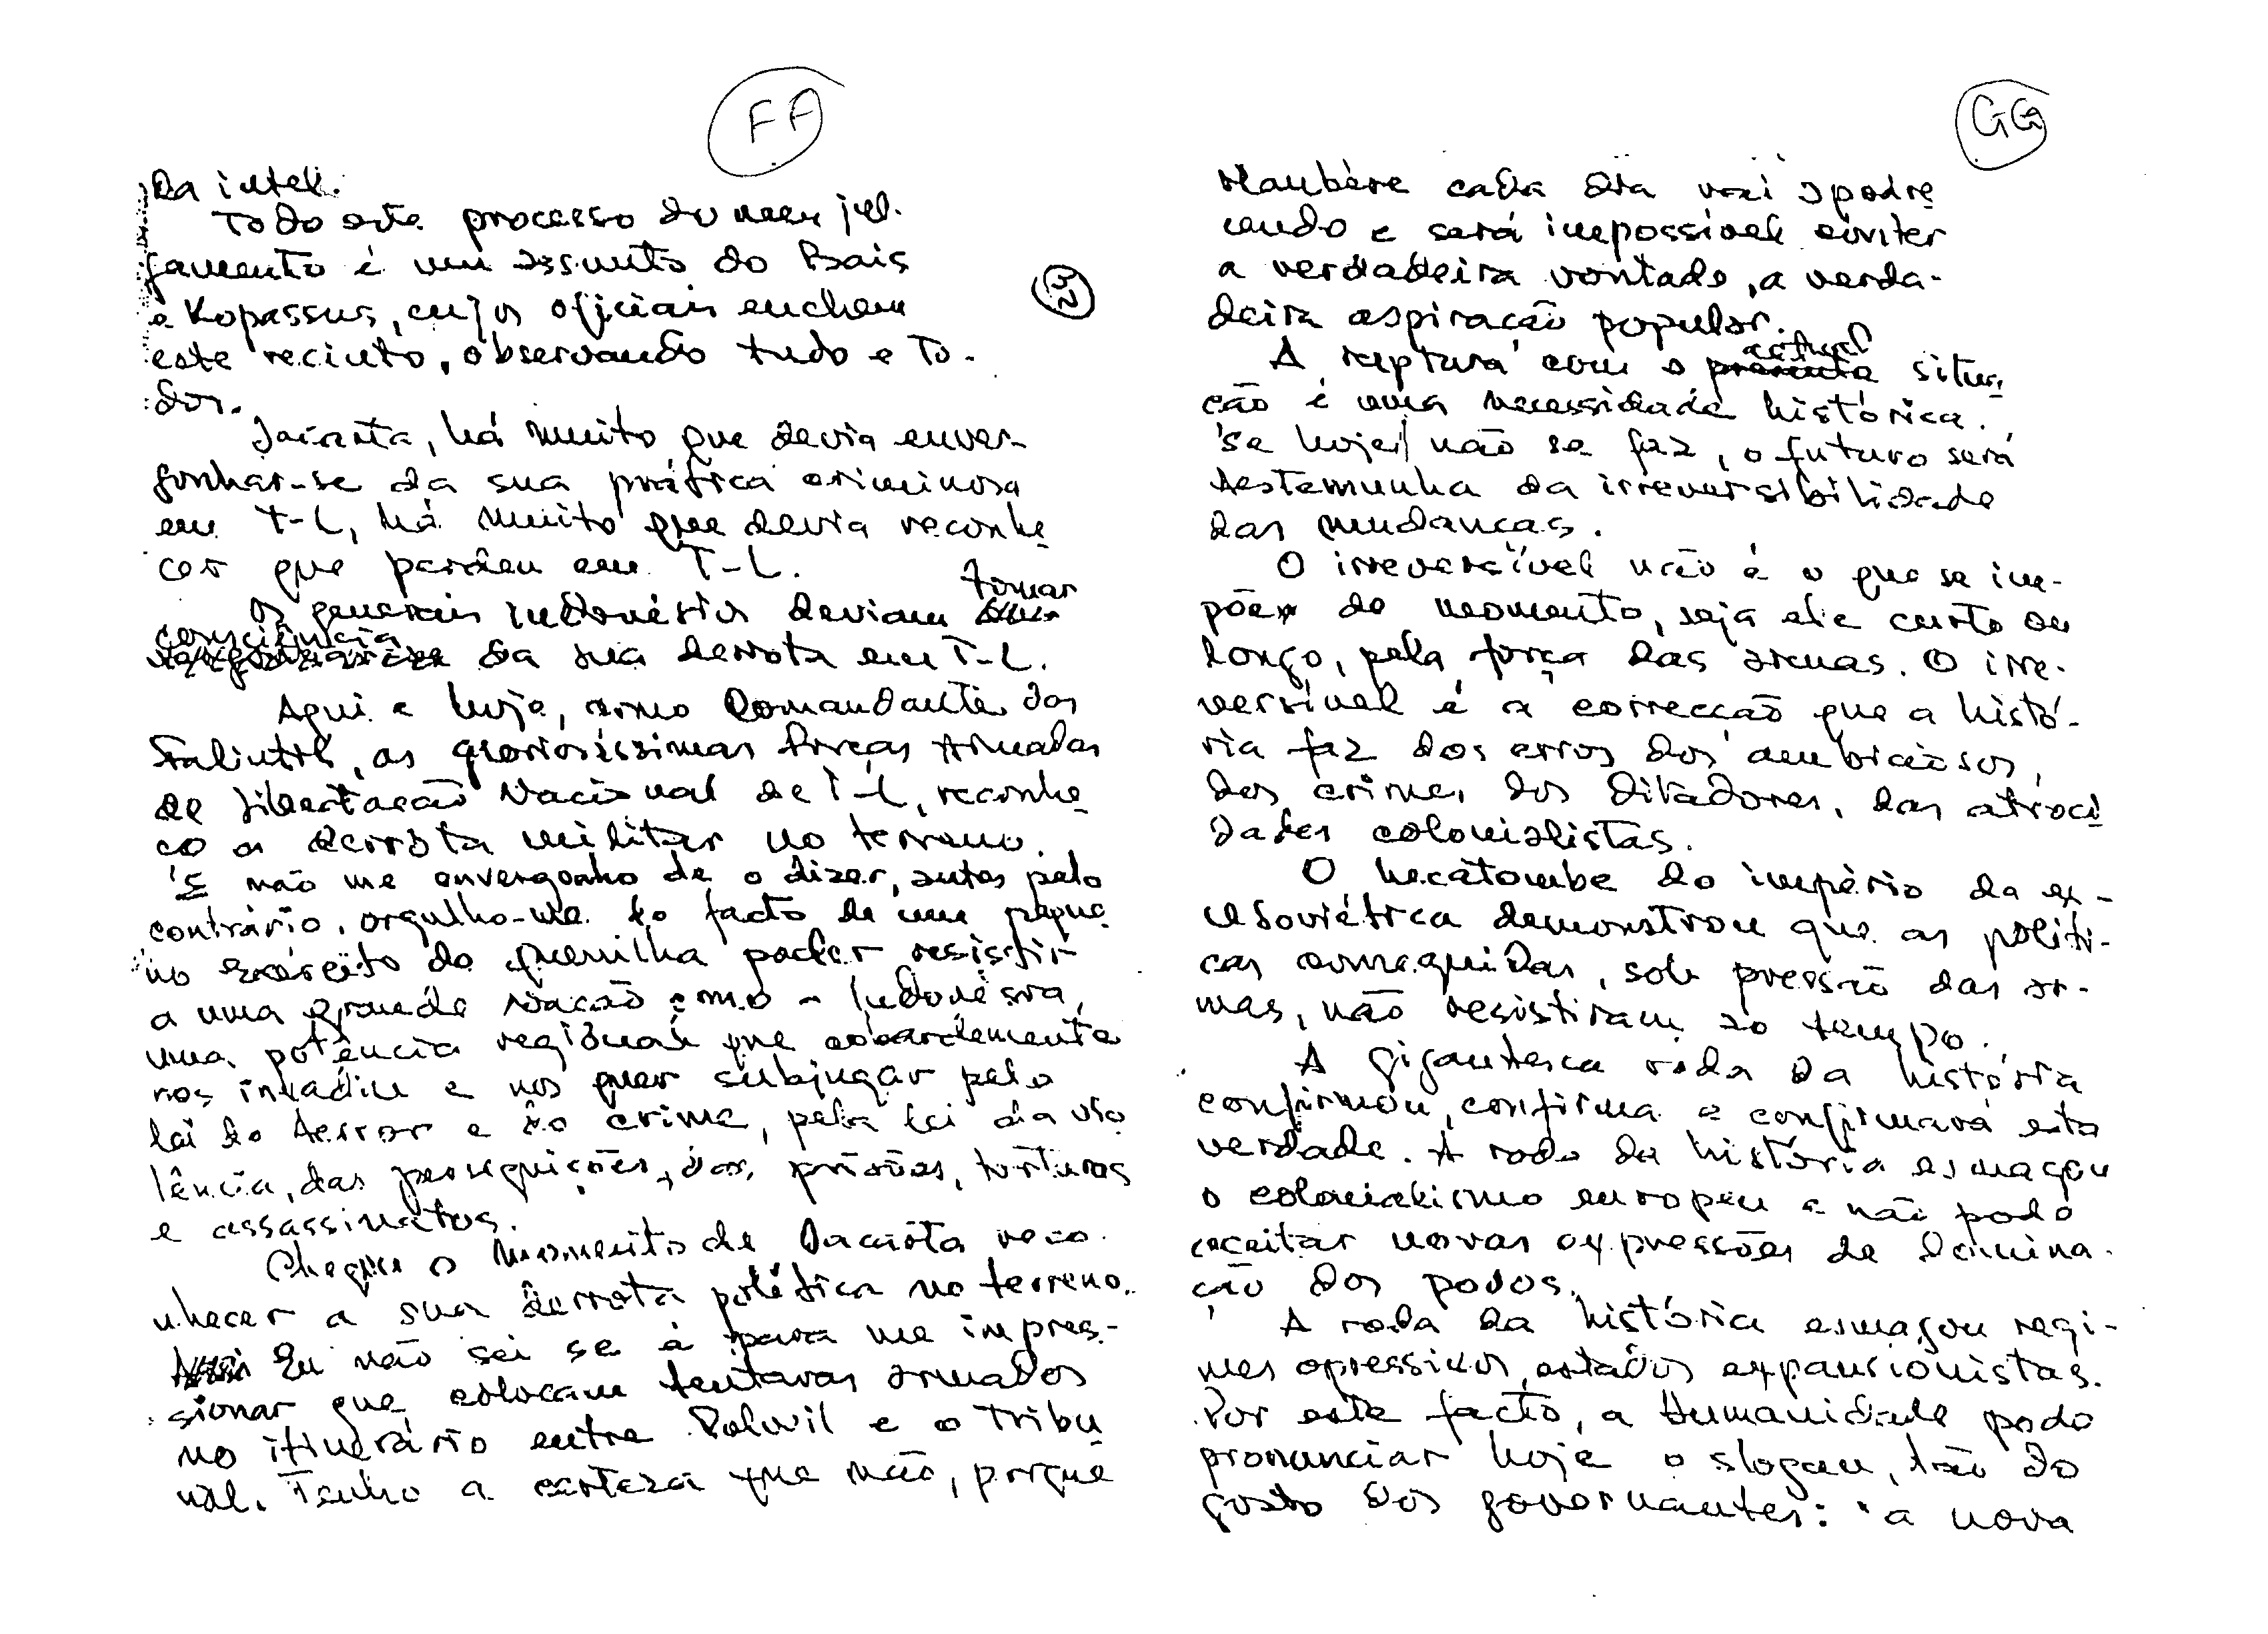 FF
da intel.
Todo este processo do meu jul-
gamento é um assunto do Bais
e Kopassus, cujos oficiais enchem
este recinto, observando tudo e to-
dos.
Jacarta, há muito que devia enver-
gonhar-se da sua prática criminosa
em T-L, há muito que devia reconhe
cer que perdeu em T-L.
Os generais indonésios deviam tomar
consciência da sua derrota em T-L.
Aqui e hoje, como Comandante das
Falintil, as gloriosíssimas Forças Armadas
de Libertação Nacional de T-L, reconhe
ço a derrota militar no terreno.
E não me envergonho de o dizer, antes pelo
contrário, orgulho-me do facto de um peque
no exército de guerrilha poder resistir
a uma grande Nação como a Indonésia,
uma potência regional que cobardemente
nos invadiu e nos quer subjugar pela
lei do terror e do crime, pela lei da vio
lência, das perseguições, das prisões, torturas
e assassinatos.
Chegou o momento de Jacarta reco-
nhecer a sua derrota política no terreno.
Eu não sei se é para me impres-
sionar que colocam tentaras armados
no itinerário entre Polwil e o Tribu
nal. Tenho a certeza que não, porque
32
GG
Maubere cada dia vai apodre
cendo e será impossível evitar
a verdadeira vontade, a verda-
deira aspiração popular.
A ruptura com a actual situa
ção é uma necessidade histórica.
Se hoje não se faz, o futuro será
testemunha da irreversibilidade
das mudanças.
O irreversível não é o que se im-
põe de momento, seja ele curto ou
longo, pela força das armas. O irre-
versível é a correcção que a histó-
ria faz dos erros dos ambiciosos,
dos crimes dos ditadores, das atroci
dades colonialistas.
O hecatombe do império da ex-
U Soviética demonstrou que as políti-
cas conseguidas, sob pressão das ar-
mas, não resistiram ao tempo.
A gigantesca roda da história
confirmou, confirma e confirmará esta
verdade. A roda da história esmagou
o colonialismo europeu e não pode
aceitar novas expressões de domina-
ção dos povos.
A roda da história esmagou regi-
mes opressivos, estados expansionistas.
Por este facto, a Humanidade pode
pronunciar hoje o slogan, tão do
gosto dos governantes: "a nova